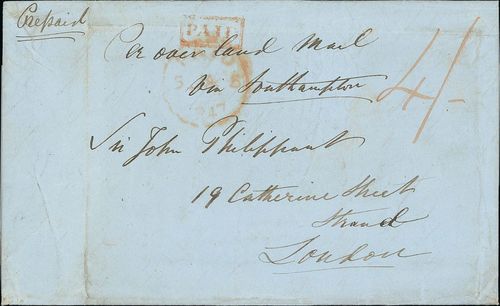 Prepaid
PAID
Per over land Mail
via Southampton
4/-
Sir John Philippart
19 Catherine Street
Strand
London